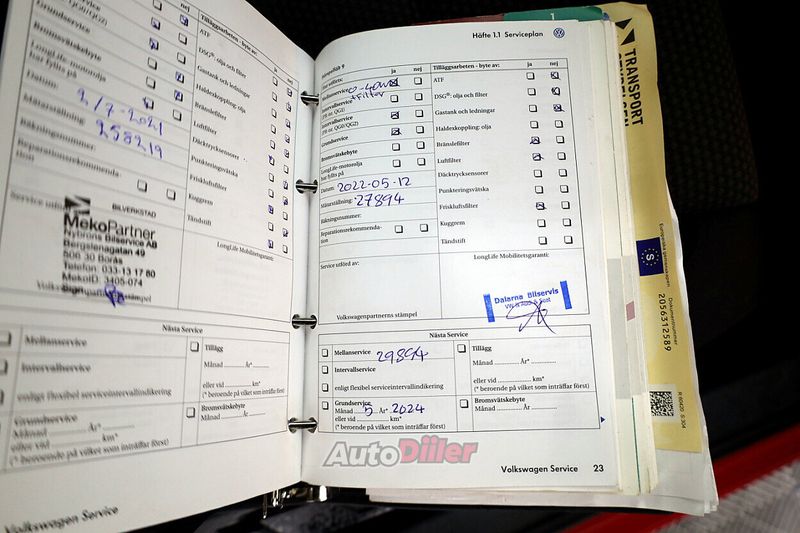 Tilläggsarbeten - byte av:
ATF
DSG®: olja och filter
Gastank och ledningar
Haldexkoppling: olja
Bränslefilter
Luftfilter
Däcktrycksensorer
Punkteringsvätska
Friskluftsfilter
Kuggrem
Tändstift
LongLife Mobilitetsgaranti:
Grundservice
Bromsvätskebyte
LongLife-motorolja
har fyllts på
Datum: 2/7-2021
Mätarställning: 258219
Räkningsnummer:
Reparationsrekommenda-
tion
BILVERKSTAD
MekoPartner
Nybrons Bilservice AB
Bergslenagatan 49
506 30 Borås
Telefon: 033-13 17 80
Nästa Service
Mellanservice
Intervallservice
enligt flexibel serviceintervallindikering
Grundservice
Månad År*
eller vid km*
(* beroende på vilket som inträffar först)
Tillägg
Månad År*
eller vid km*
(* beroende på vilket som inträffar först)
Bromsvätskebyte
Volkswagen Service
Häfte 1.1 Serviceplan
ja nej
Mellanservice 0-40W
Intervallservice + filter
Intervallservice
Grundservice
Bromsvätskebyte
LongLife-motorolja
har fyllts på
Datum: 2022-05-12
Mätarställning: 27894
Räkningsnummer:
Reparationsrekommenda-
tion
Service utförd av:
Volkswagenpartnerns stämpel
Tilläggsarbeten - byte av: ja nej
ATF
DSG®: olja och filter
Gastank och ledningar
Haldexkoppling: olja
Bränslefilter
Luftfilter
Däcktrycksensorer
Punkteringsvätska
Friskluftsfilter
Kuggrem
Tändstift
LongLife Mobilitetsgaranti:
Dalarna Bilservis
Nästa Service
Mellanservice 29894
Intervallservice
enligt flexibel serviceintervallindikering
Grundservice
Månad 5 År* 2024
eller vid km*
(* beroende på vilket som inträffar först)
Tillägg
Månad År*
eller vid km*
(* beroende på vilket som inträffar först)
Bromsvätskebyte
Månad År*
eller vid km*
(* beroende på vilket som inträffar först)
AutoDiiler
Volkswagen Service 23
TRANSPORT
STYRELSEN
S
Dokumentnummer
2056312589